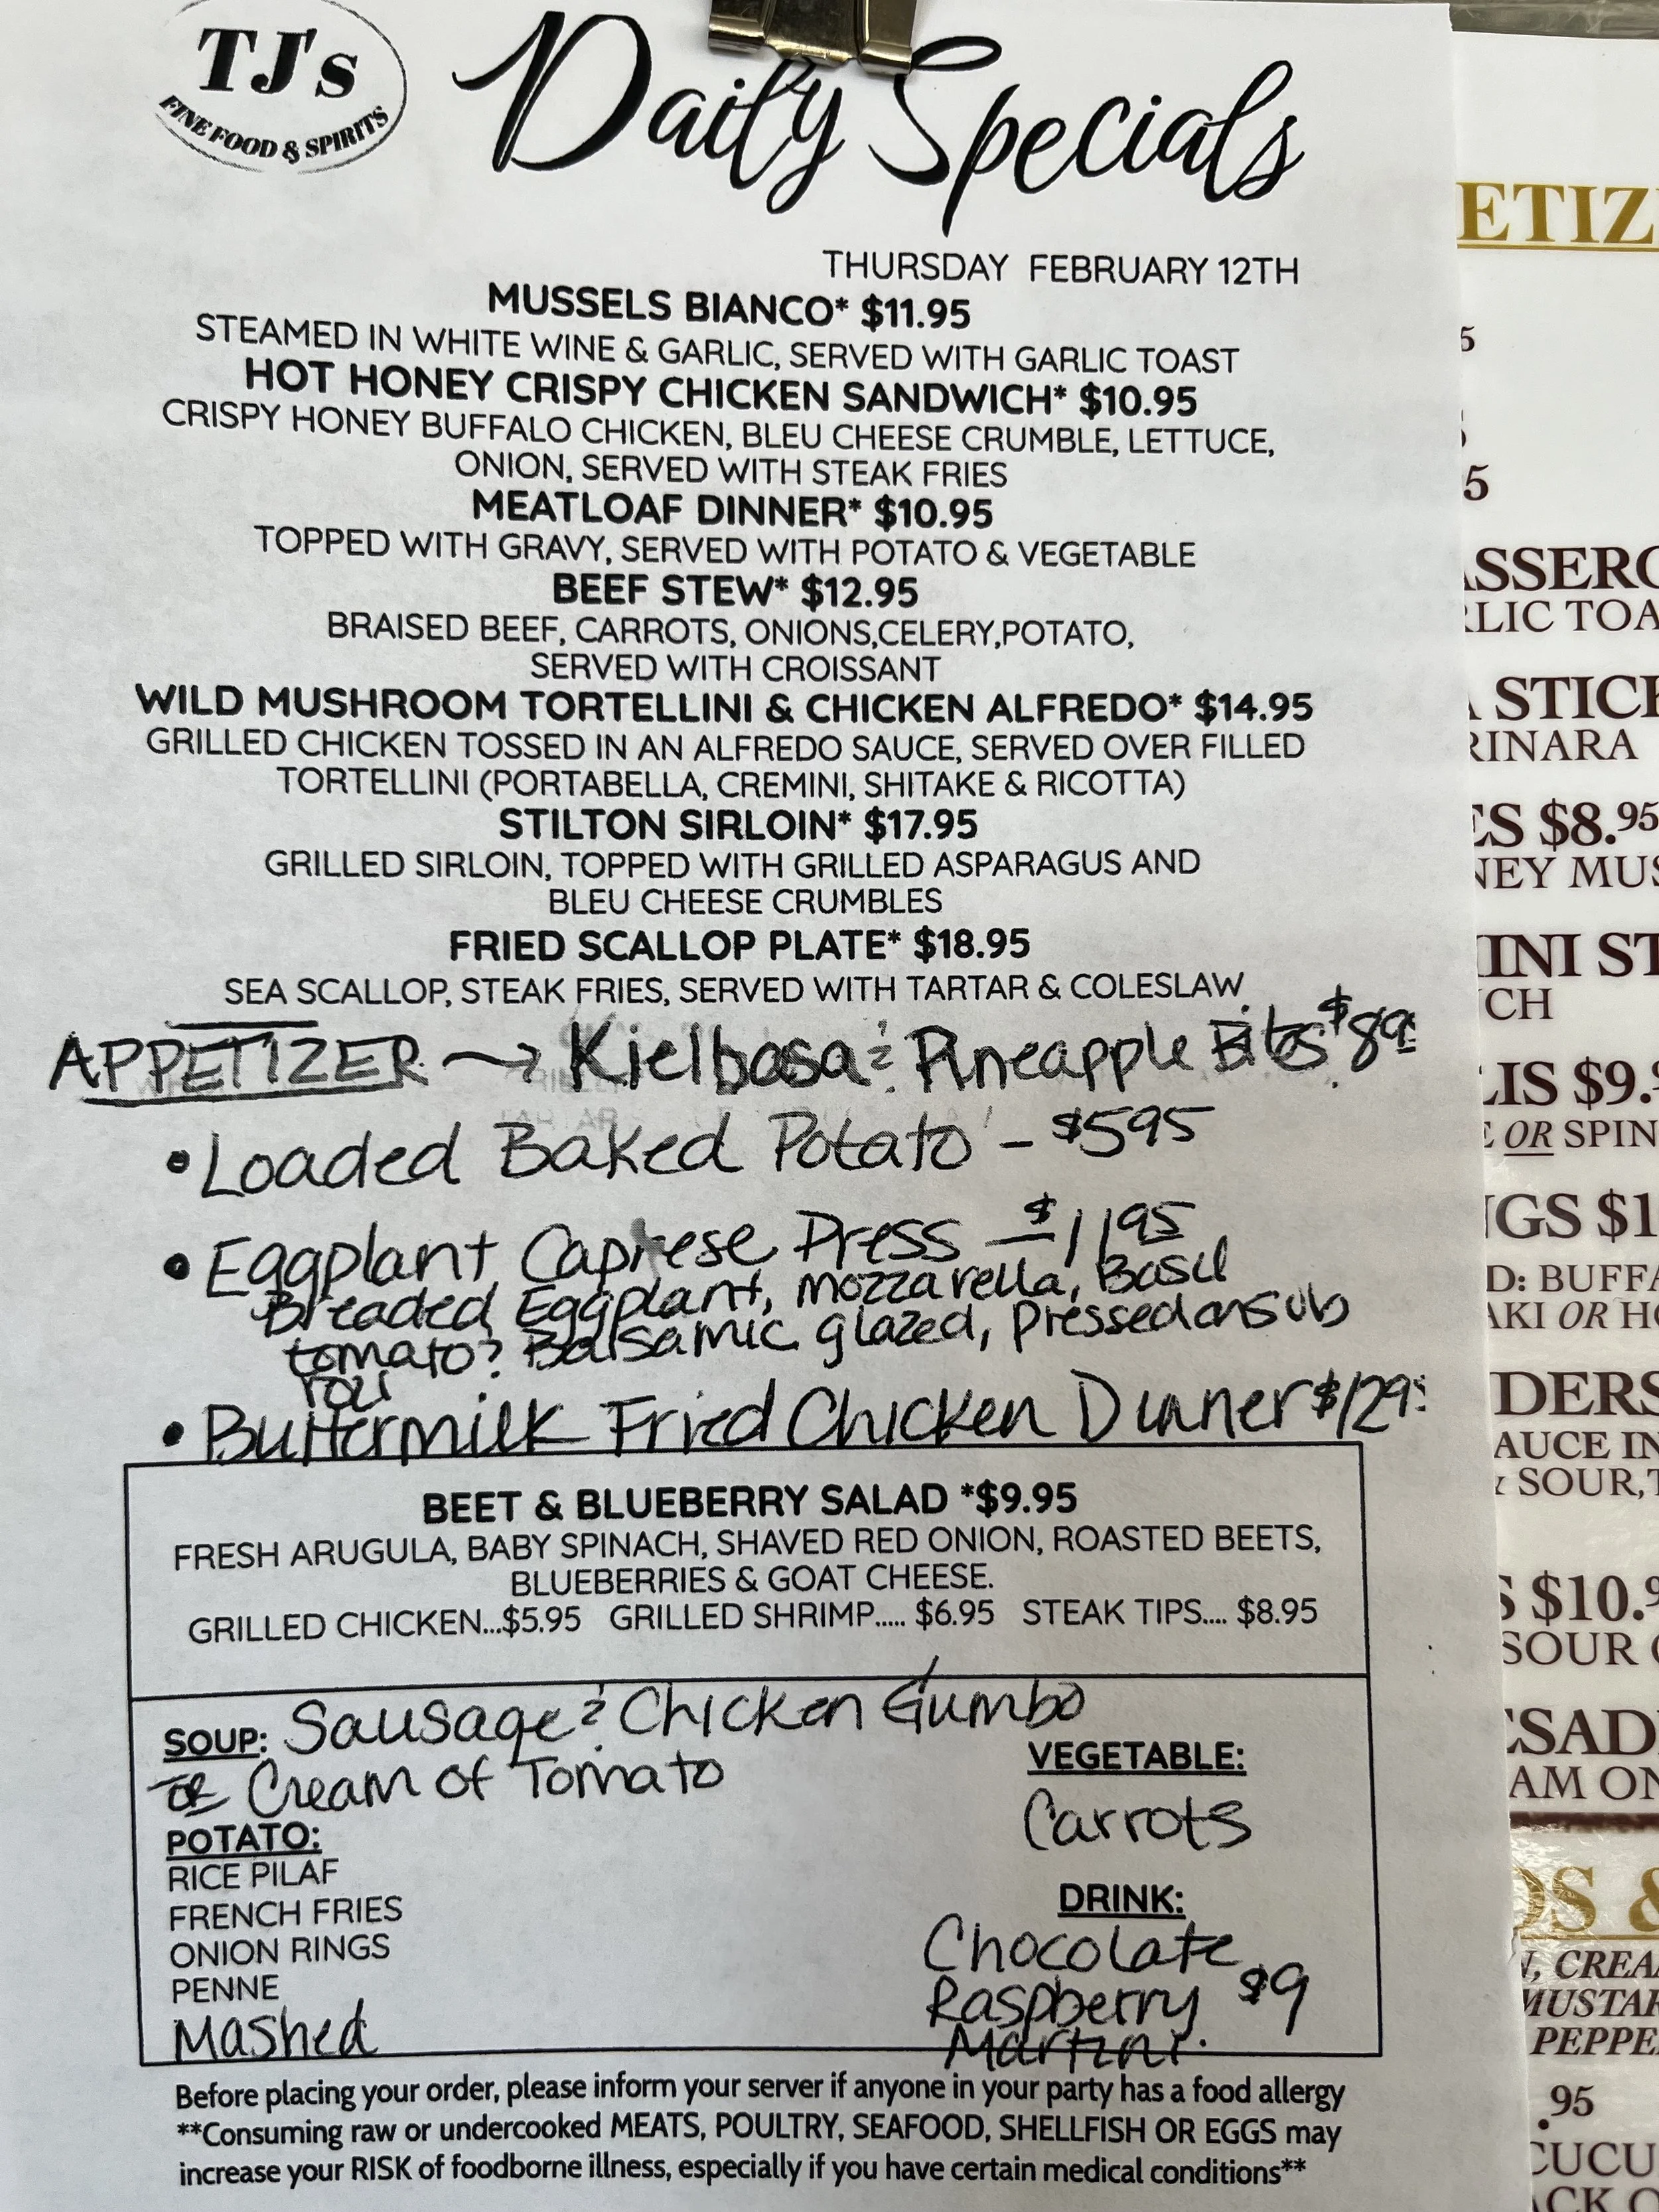 TJ's
FINE FOOD & SPIRITS
Daily Specials
THURSDAY FEBRUARY 12TH
MUSSELS BIANCO* $11.95
STEAMED IN WHITE WINE & GARLIC, SERVED WITH GARLIC TOAST
HOT HONEY CRISPY CHICKEN SANDWICH* $10.95
CRISPY HONEY BUFFALO CHICKEN, BLEU CHEESE CRUMBLE, LETTUCE,
ONION, SERVED WITH STEAK FRIES
MEATLOAF DINNER* $10.95
TOPPED WITH GRAVY, SERVED WITH POTATO & VEGETABLE
BEEF STEW* $12.95
BRAISED BEEF, CARROTS, ONIONS,CELERY,POTATO,
SERVED WITH CROISSANT
WILD MUSHROOM TORTELLINI & CHICKEN ALFREDO* $14.95
GRILLED CHICKEN TOSSED IN AN ALFREDO SAUCE, SERVED OVER FILLED
TORTELLINI (PORTABELLA, CREMINI, SHITAKE & RICOTTA)
STILTON SIRLOIN* $17.95
GRILLED SIRLOIN, TOPPED WITH GRILLED ASPARAGUS AND
BLEU CHEESE CRUMBLES
FRIED SCALLOP PLATE* $18.95
SEA SCALLOP, STEAK FRIES, SERVED WITH TARTAR & COLESLAW
APPETIZER → Kielbasa & Pineapple Bites $895
• Loaded Baked Potato - $595
• Eggplant Caprese Press - $1195
Breaded Eggplant, mozzarella, Basil
tomato & Balsamic glazed, pressed on sub
roll
• Buttermilk Fried Chicken Dinner $1295
BEET & BLUEBERRY SALAD *$9.95
FRESH ARUGULA, BABY SPINACH, SHAVED RED ONION, ROASTED BEETS,
BLUEBERRIES & GOAT CHEESE.
GRILLED CHICKEN...$5.95 GRILLED SHRIMP..... $6.95 STEAK TIPS.... $8.95
SOUP: Sausage & Chicken Gumbo
or Cream of Tomato
POTATO:
RICE PILAF
FRENCH FRIES
ONION RINGS
PENNE
Mashed
VEGETABLE:
Carrots
DRINK:
Chocolate
Raspberry $9
Martini.
Before placing your order, please inform your server if anyone in your party has a food allergy
**Consuming raw or undercooked MEATS, POULTRY, SEAFOOD, SHELLFISH OR EGGS may
increase your RISK of foodborne illness, especially if you have certain medical conditions**
ETIZ
5
5
ASSERO
RLIC TOA
A STICK
RINARA
ES $8.95
NEY MUS
INI ST
CH
LIS $9.9
E OR SPIN
NGS $1
D: BUFFA
AKI OR HO
DERS
AUCE IN
& SOUR, T
S $10.9
SOUR C
ESAD
AM ON
DS &
N, CREA
MUSTAR
PEPPE
.95
CUCU
ACK O